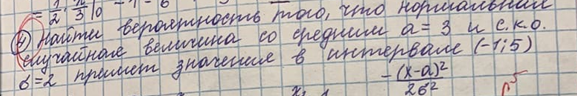 = 1/2 · π/3 |0
④ Найти вероятность того, что нормальная
случайная величина со средним a = 3 и с.к.о.
б=2 примет значение в интервале (-1; 5)
-(x-a)²
2б²